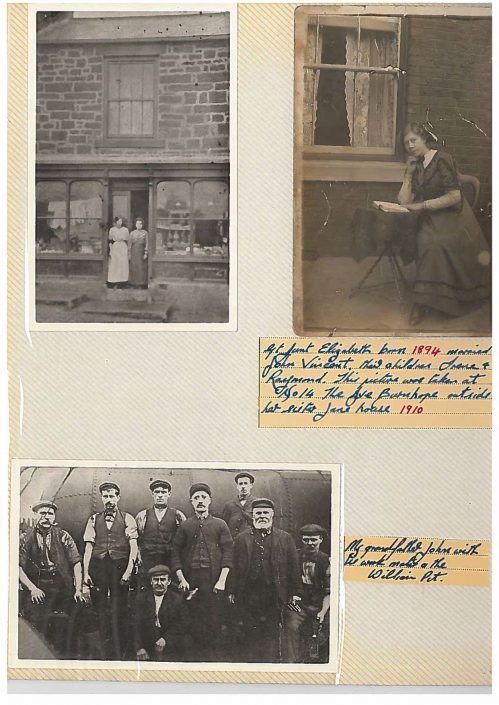 Gt Aunt Elizabeth born 1894 married
John Vincent, their children Irene &
Raymond. This picture was taken at
No 14 The Ave Burnhope outside
her sister Jane house 1910
My grandfather John with
his work mates a the
William Pit.